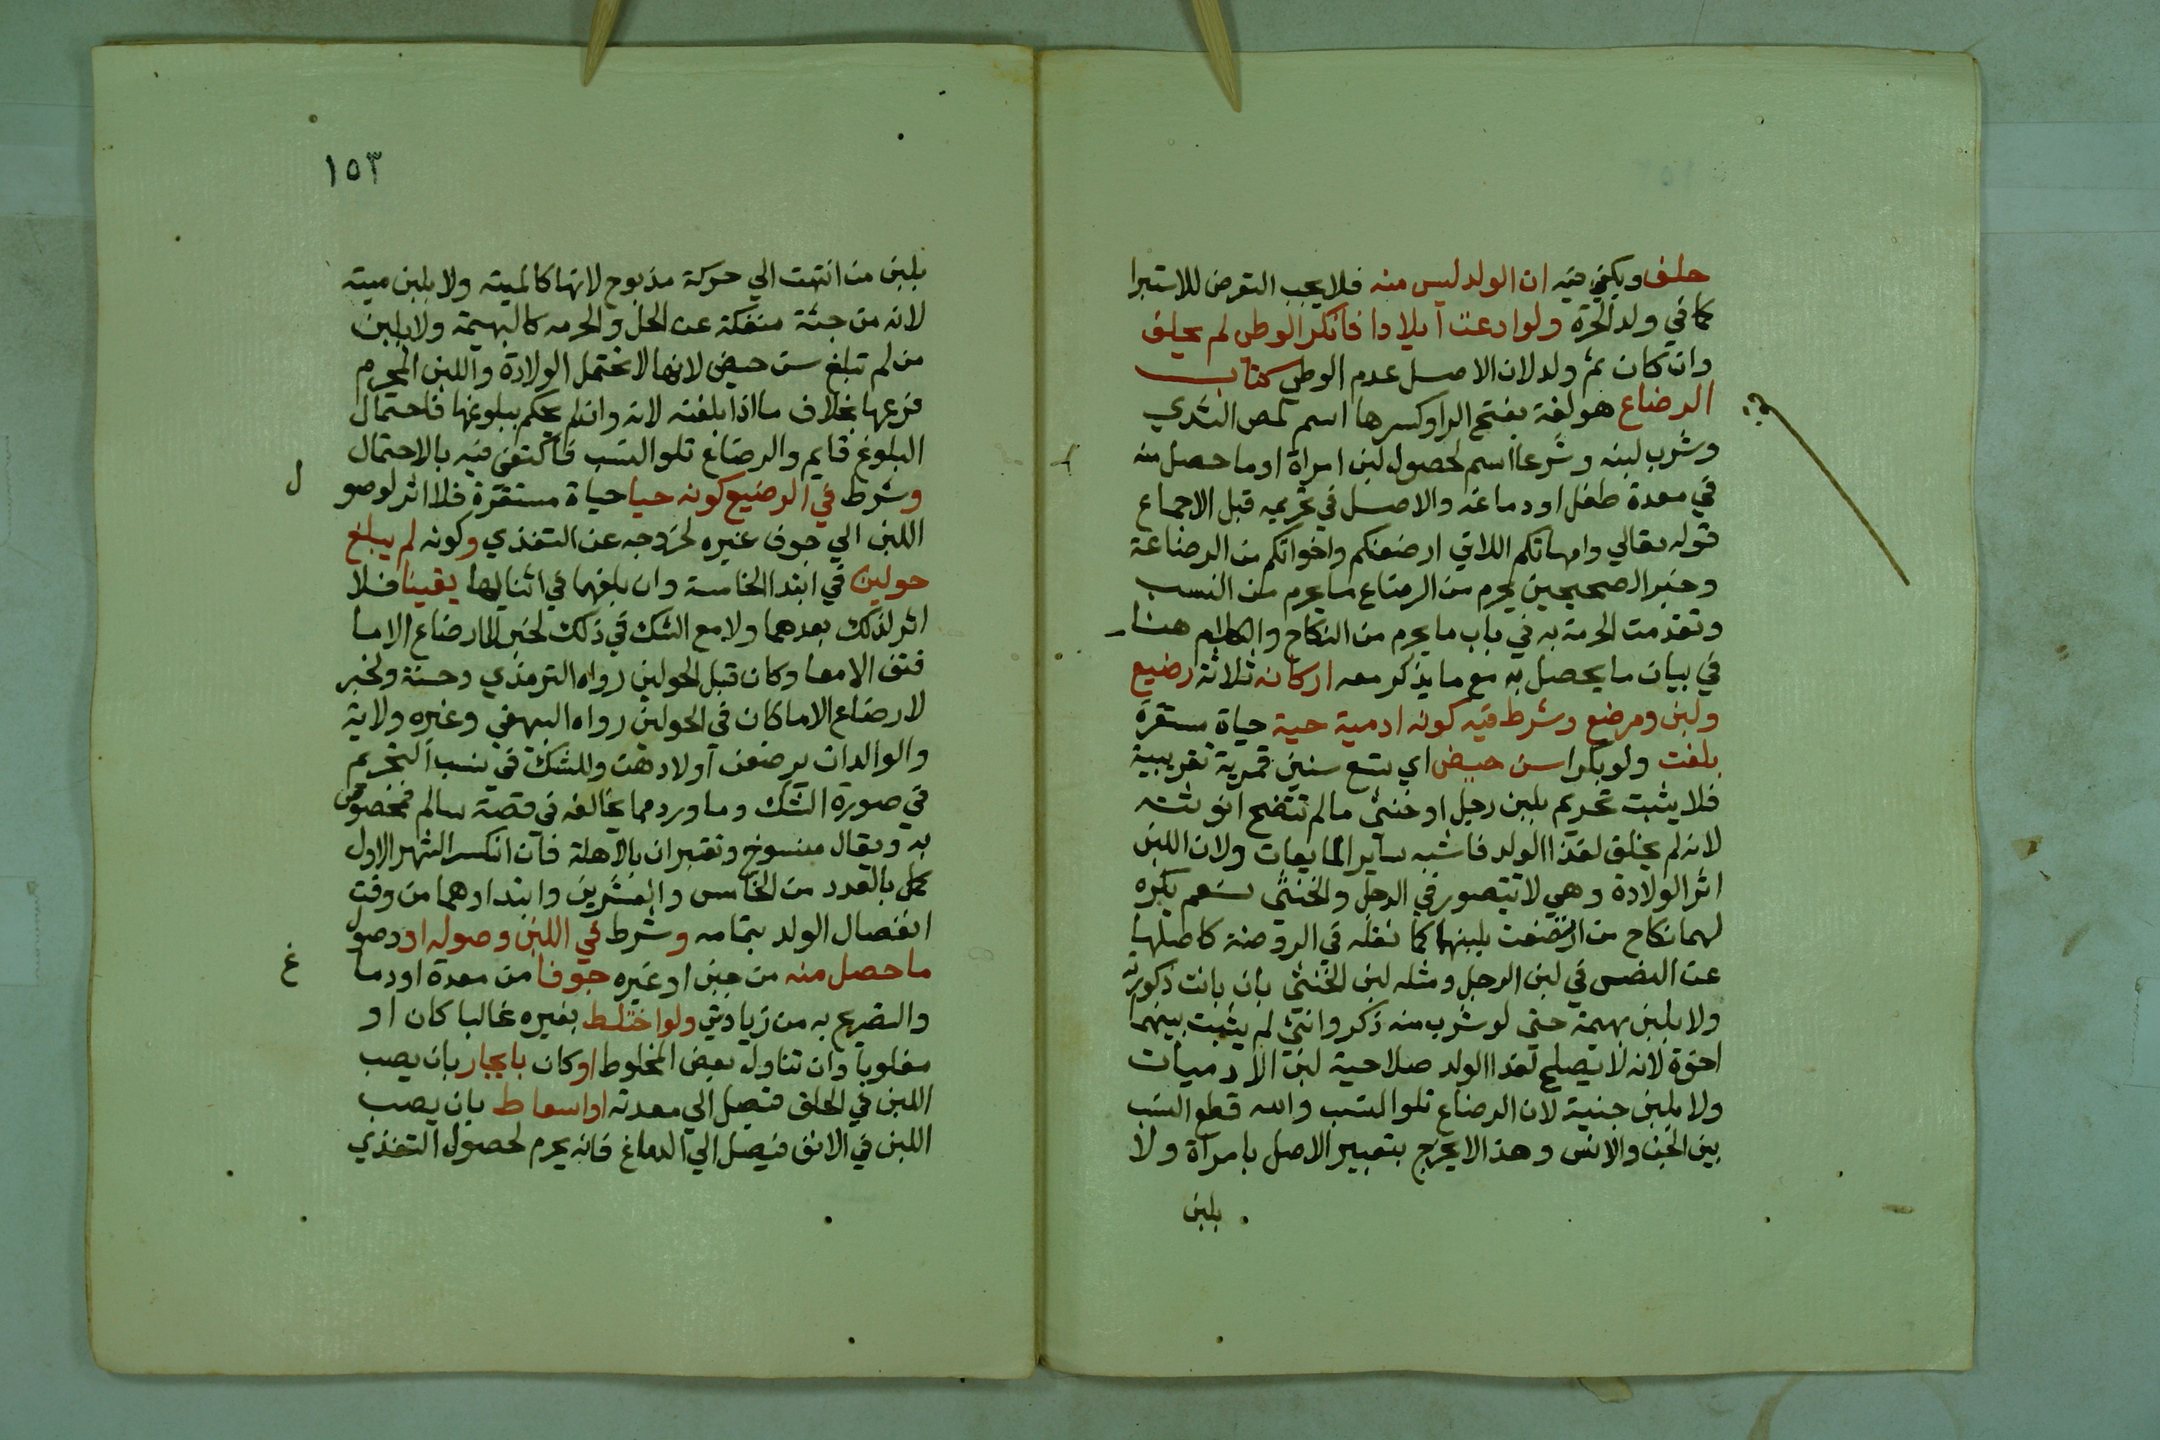 حلف ويكفي فيه ان الولد ليس منه فلا يجب التعرض للاستبرا
كما في ولد الحرة ولو ادعت ايلادا فانكر الوطي لم يحلف
وان كان ثم ولد لان الاصل عدم الوطي كتاب
الرضاع هو لغة بفتح الرا وكسرها اسم لمص الثدي
وشرب لبنه وشرعا اسم لحصول لبن امراة او ما حصل منه
في معدة طفل او دماغه والاصل في تحريمه قبل الاجماع
قوله تعالي وامهاتكم اللاتي ارضعنكم واخواتكم من الرضاعة
وخبر الصحيحين يحرم من الرضاع ما يحرم من النسب
وتقدمت الحرمة به في باب ما يحرم من النكاح والكلام هنا
في بيان ما يحصل به مع ما يذكر معه اركانه ثلاثة رضيع
ولبن ومرضع وشرط فيه كونه ادمية حية حياة مستقرة
بلغت ولو بكرا سن حيض اي تسع سنين قمرية تقريبية
فلا يثبت تحريم بلبن رجل او خنثي ما لم تتضح انوثته
لانه لم يخلق لغذا الولد فاشبه ساير المايعات ولان اللبن
اثر الولادة وهي لا تتصور في الرجل والخنثي نعم يكره
لهما نكاح من ارتضعت بلبنهما كما نقله في الروضة كاصلها
عن النص في لبن الرجل ومثله لبن الخنثي بان بانت ذكورته
ولا بلبن بهيمة حتى لو شرب منه ذكر وانثي لم يثبت بينهما
اخوة لانه لا يصلح لغذا الولد صلاحية لبن الادميات
ولا بلبن جنية لان الرضاع تلو النسب والله قطع النسب
بين الجن والانس وهذا لا يخرج بتعبير الاصل بامراة ولا
بلبن
١٥٣
بلبن من انتهت الي حركة مذبوح لانها كالميته ولا بلبن ميته
لانه من جثة منفكة عن الحل والحرمه كالبهيمة ولا بلبن
من لم تبلغ سن حيض لانها لا تحتمل الولادة واللبن المحرم
فرعها بخلاف ما اذا بلغته لانه وان لم يحكم ببلوغها فاحتمال
البلوغ قايم والرضاع تلو النسب فاكتفى فيه بالاحتمال
وشرط في الرضيع كونه حيا حياة مستقرة فلا اثر لوصو
ل
اللبن الي جوف غيره لخروجه عن التغذي وكونه لم يبلغ
حولين في ابتدا الخامسة وان بلغهما في اثنايها يقينا فلا
اثر لذلك بعدهما ولا مع الشك في ذلك لخبر لا رضاع الا ما
فتق الامعا وكان قبل الحولين رواه الترمذي وحسنة ولخبر
لا رضاع الا ما كان في الحولين رواه البيهقي وغيره ولاية
والوالدات يرضعن اولادهن وللشك في سبب التحريم
في صورة الشك وما ورد مما يخالفه في قصة سالم فمخصوص
به ويقال منسوخ وتعتبران بالاهلة فان انكسر الشهر الاول
كمل بالعدد من الخامس والعشرين وابتداوهما من وقت
انفصال الولد بتمامه وشرط في اللبن وصوله او وصول
ما حصل منه من جبن او غيره جوفا من معدة او دما
غ
والتصريح به من زيادتي ولو اختلط بغيره غالبا كان او
مغلوبا وان تناول بعض المخلوط او كان بايجار بان يصب
اللبن في الحلق فيصل الي معدته او اسعاط بان يصب
اللبن في الانف فيصل الي الدماغ فانه يحرم لحصول التغذي